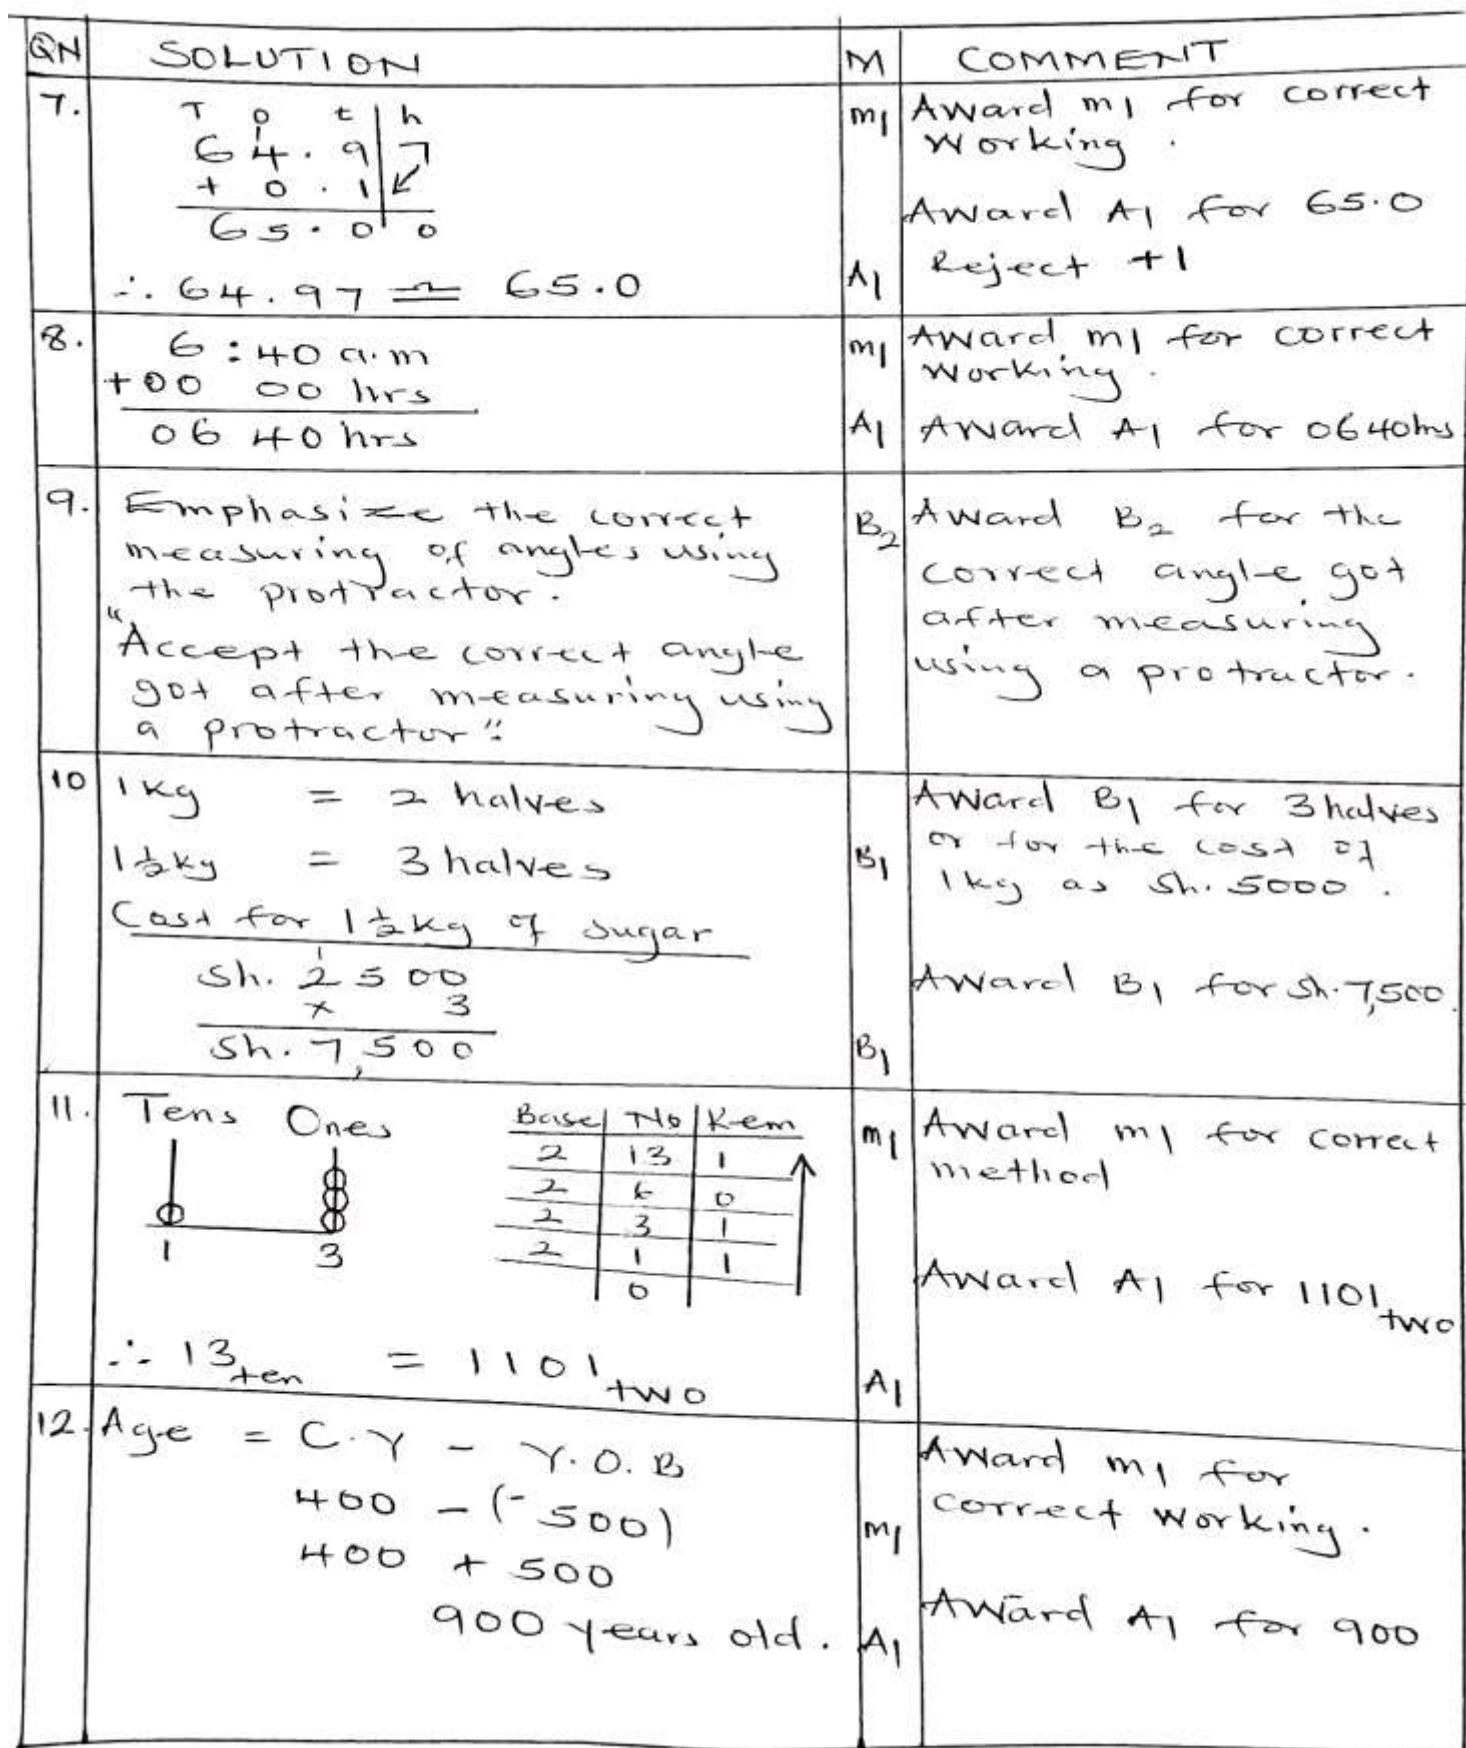 QN SOLUTION M COMMENT
7. T O t h
64.97
+ 0.1
65.00
∴ 64.97 ≃ 65.0
M1 Award M1 for correct
working.
Award A1 for 65.0
A1 Reject +1
8. 6:40 a.m
+00 00 hrs
06 40 hrs
M1 Award M1 for correct
working.
A1 Award A1 for 0640hrs
9. Emphasize the correct
measuring of angles using
the protractor.
"Accept the correct angle
got after measuring using
a protractor".
B2 Award B2 for the
correct angle got
after measuring
using a protractor.
10 1kg = 2 halves
1½kg = 3 halves
Cost for 1½kg of sugar
1
Sh. 2500
x 3
Sh. 7,500
B1 Award B1 for 3 halves
or for the cost of
1kg as Sh. 5000.
B1 Award B1 for Sh. 7,500.
11. Tens Ones
1 3
Base No Rem
2 13 1
2 6 0
2 3 1
2 1 1
0
∴ 13ten = 1101two
M1 Award M1 for correct
method
A1 Award A1 for 1101two
12. Age = C.Y - Y.O.B
400 - (-500)
400 + 500
900 years old.
M1 Award M1 for
correct working.
A1 Award A1 for 900